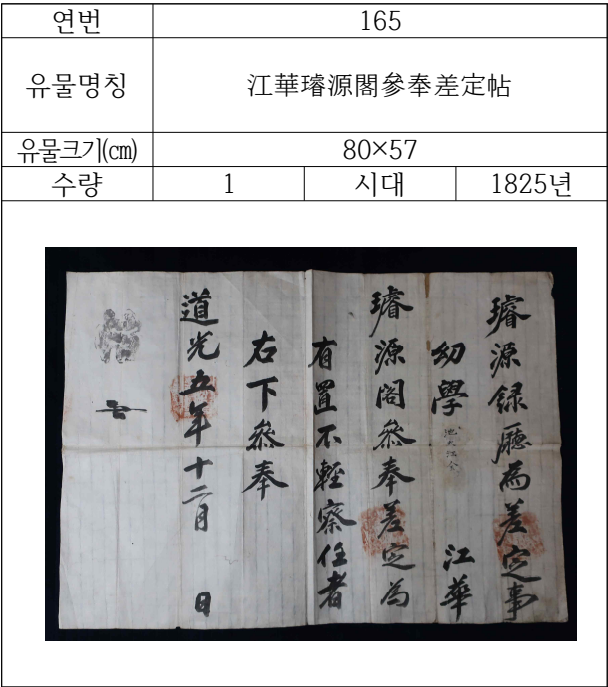 연번 165
유물명칭 江華璿源閣參奉差定帖
유물크기(㎝) 80×57
수량 1 시대 1825년
璿源録廳為差定事
幼學 江華
璿源閣叅奉差定為
有置不輕察任者
右下叅奉
道光五年十二月 日